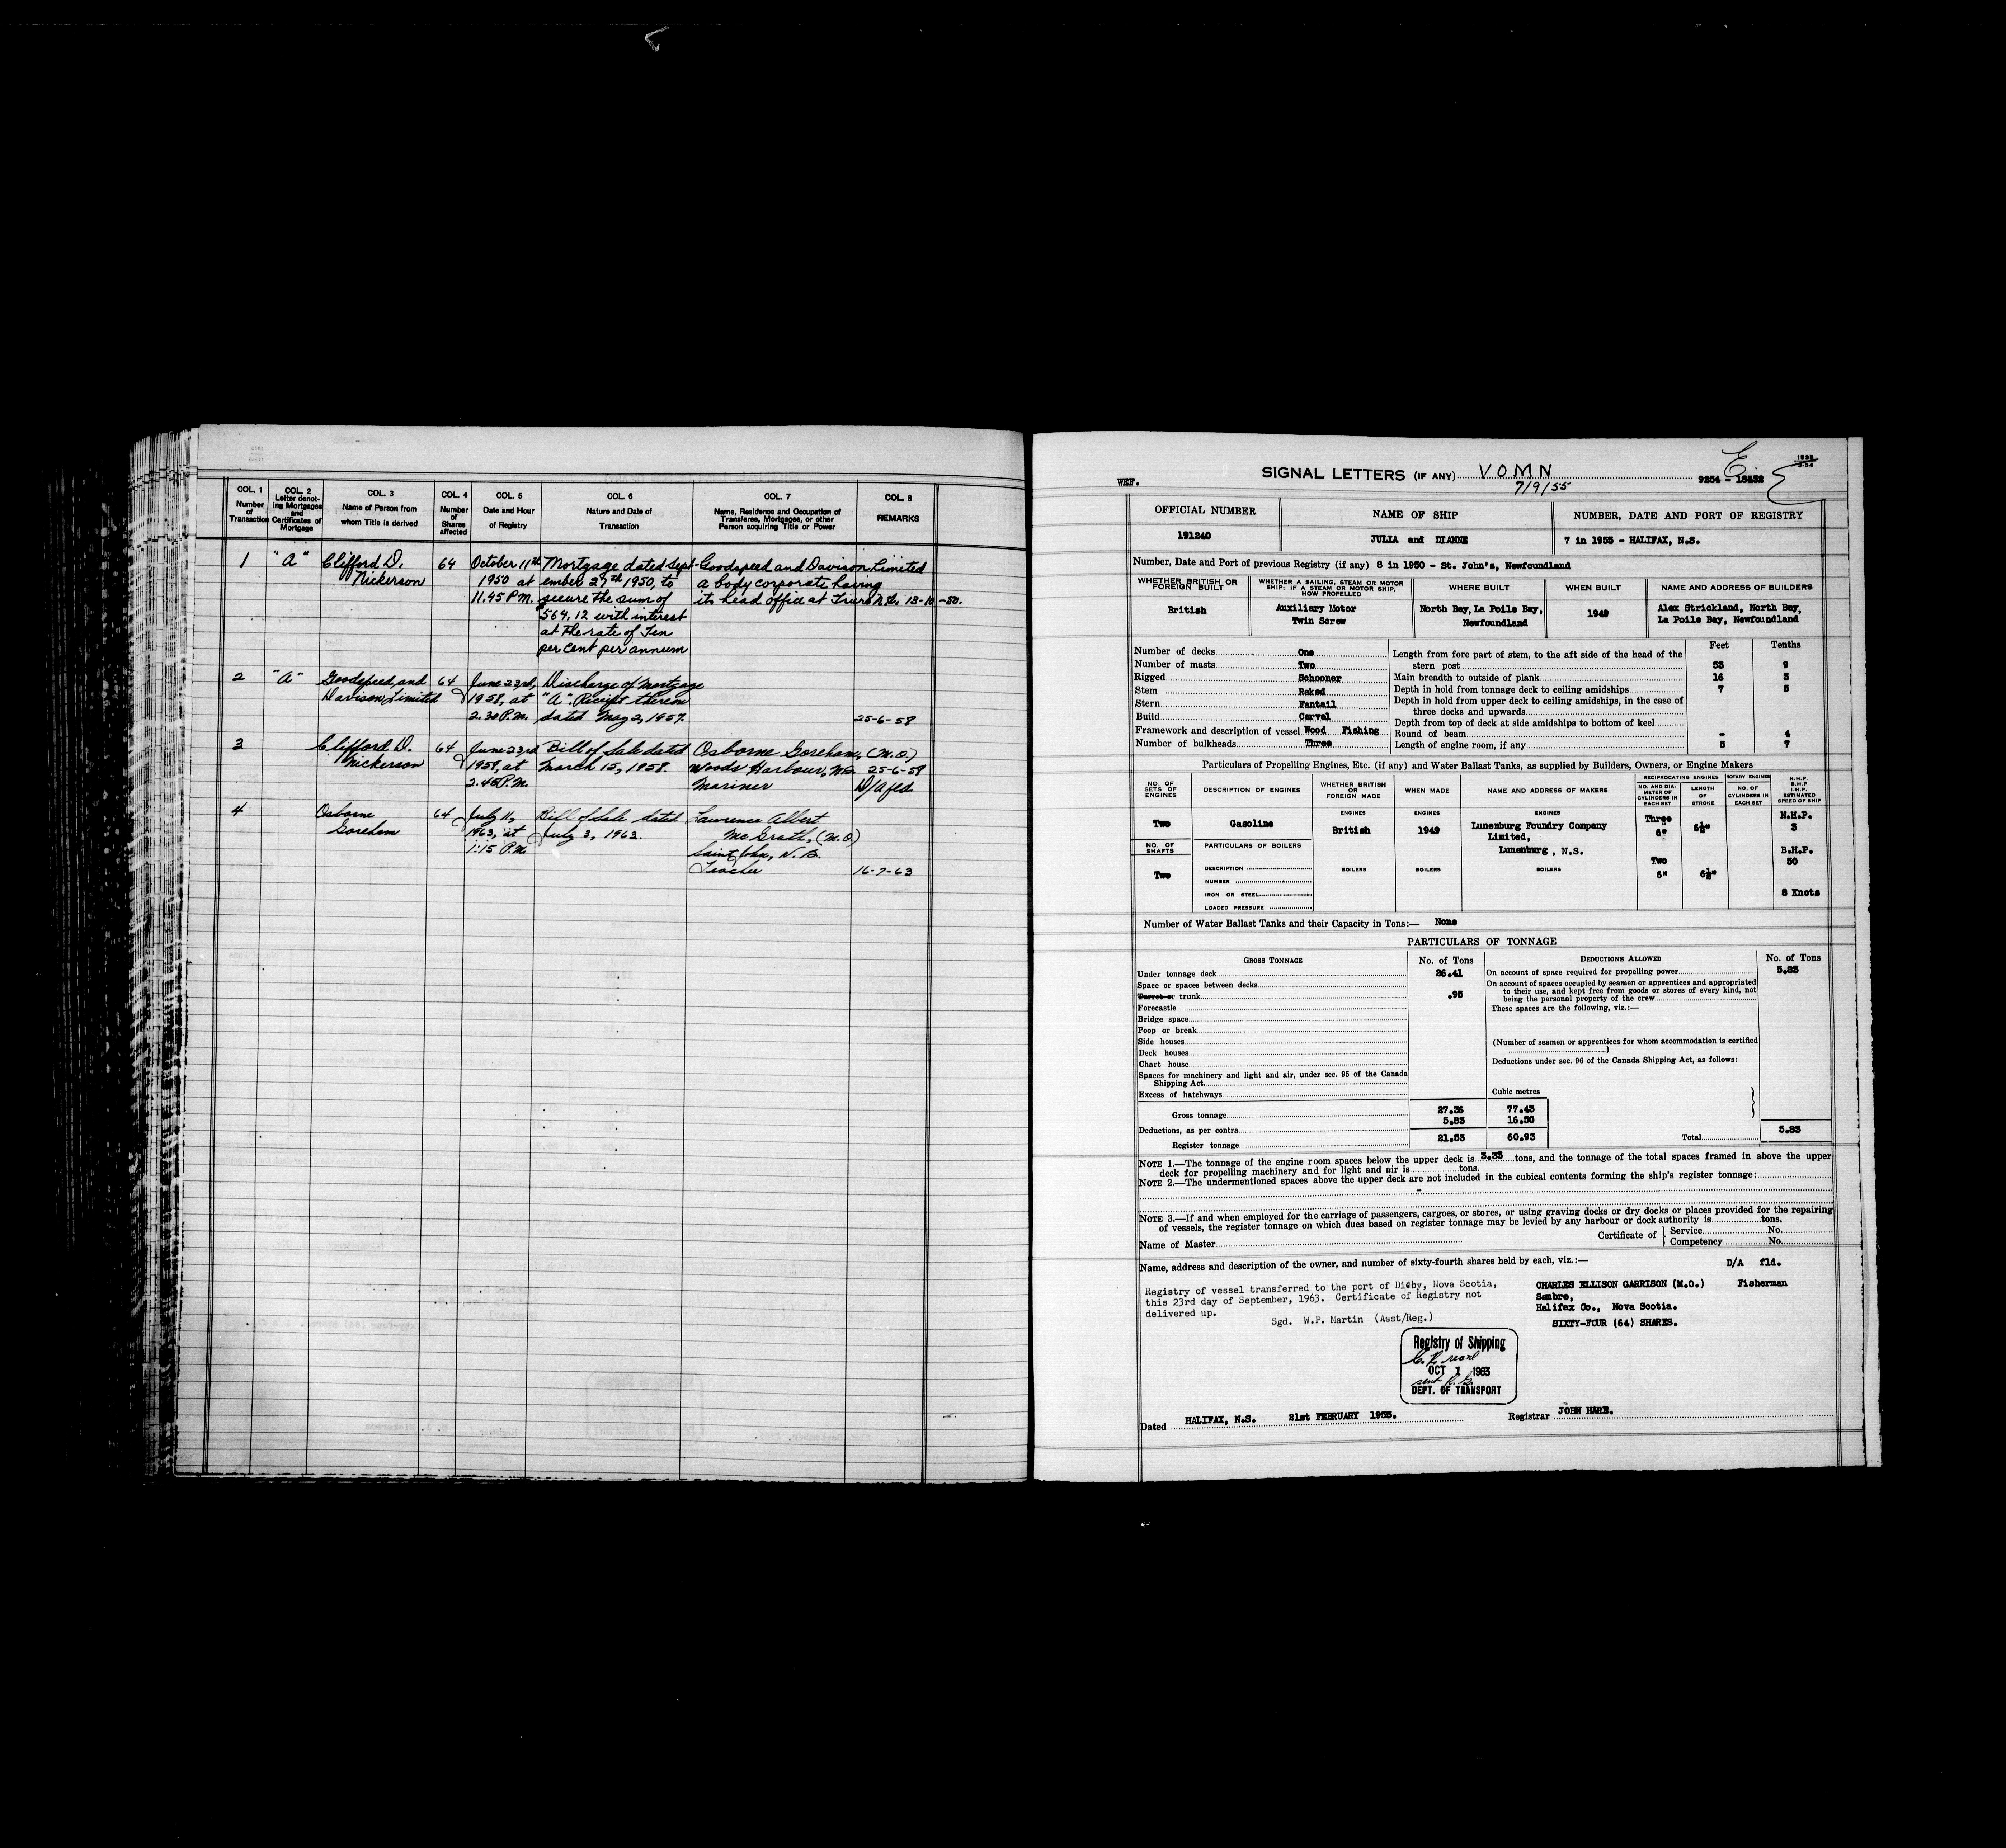 COL. 1
Number
of
Transaction
COL. 2
Letter denot-
ing Mortgages
and
Certificates of
Mortgage
COL. 3
Name of Person from
whom Title is derived
COL. 4
Number
of
Shares
affected
COL. 5
Date and Hour
of Registry
COL. 6
Nature and Date of
Transaction
COL. 7
Name, Residence and Occupation of
Transferee, Mortgagee, or other
Person acquiring Title or Power
COL. 8
REMARKS
1 "A" Clifford D. 64 October 11th Mortgage dated Sept- Goodspeed and Davison Limited
Nickerson 1950 at ember 27th 1950, to a body corporate having
11.45 P.M. secure the sum of its head office at Truro N.S. 13-10-50.
$564.12 with interest
at the rate of Ten
per cent per annum
2 "A" Goodspeed and 64 June 23rd, Discharge of Mortgage
Davison Limited 1958, at "A". Receipt thereon
2.30 P.M. dated May 2, 1957. 25-6-58
3 Clifford D. 64 June 23rd Bill of Sale dated Osborne Goreham, (M.O.)
Nickerson 1958, at March 15, 1958. Woods Harbour, N.S. 25-6-58
2.45 P.M. Mariner D/A fld
4 Osborne 64 July 11, Bill of Sale dated Lawrence Albert
Goreham 1963, at July 3, 1963. McGrath, (M.O)
1:15 P.M. Saint John, N.B.
Teacher 16-7-63
WEF.
SIGNAL LETTERS (IF ANY) VOMN
7/9/55
9254 - 18532
E.
OFFICIAL NUMBER NAME OF SHIP NUMBER, DATE AND PORT OF REGISTRY
191240 JULIA and DIANNE 7 in 1955 - HALIFAX, N.S.
Number, Date and Port of previous Registry (if any) 8 in 1950 - St. John's, Newfoundland
WHETHER BRITISH OR
FOREIGN BUILT
WHETHER A SAILING, STEAM OR MOTOR
SHIP; IF A STEAM OR MOTOR SHIP,
HOW PROPELLED
WHERE BUILT
WHEN BUILT
NAME AND ADDRESS OF BUILDERS
British Auxiliary Motor North Bay, La Poile Bay, 1949 Alex Strickland, North Bay,
Twin Screw Newfoundland La Poile Bay, Newfoundland
Feet Tenths
Number of decks One
Number of masts Two
Rigged Schooner
Stem Raked
Stern Fantail
Build Carvel
Framework and description of vessel Wood Fishing
Number of bulkheads Three
Length from fore part of stem, to the aft side of the head of the
stern post 53 9
Main breadth to outside of plank 16 3
Depth in hold from tonnage deck to ceiling amidships 7 5
Depth in hold from upper deck to ceiling amidships, in the case of
three decks and upwards
Depth from top of deck at side amidships to bottom of keel
Round of beam - 4
Length of engine room, if any 5 7
Particulars of Propelling Engines, Etc. (if any) and Water Ballast Tanks, as supplied by Builders, Owners, or Engine Makers
NO. OF
SETS OF
ENGINES
DESCRIPTION OF ENGINES
WHETHER BRITISH
OR
FOREIGN MADE
WHEN MADE
NAME AND ADDRESS OF MAKERS
RECIPROCATING ENGINES
NO. AND DIA-
METER OF
CYLINDERS IN
EACH SET
LENGTH
OF
STROKE
ROTARY ENGINES
NO. OF
CYLINDERS IN
EACH SET
N.H.P.
B.H.P
I.H.P.
ESTIMATED
SPEED OF SHIP
ENGINES ENGINES ENGINES
Two Gasoline British 1949 Lunenburg Foundry Company
Limited,
Lunenburg, N.S.
Three
6" 6½"
N.H.P.
5
B.H.P.
50
NO. OF
SHAFTS
PARTICULARS OF BOILERS
Two
DESCRIPTION
NUMBER
IRON OR STEEL
LOADED PRESSURE
BOILERS BOILERS BOILERS
Two
6" 6½"
8 Knots
Number of Water Ballast Tanks and their Capacity in Tons:— None
PARTICULARS OF TONNAGE
GROSS TONNAGE No. of Tons DEDUCTIONS ALLOWED No. of Tons
Under tonnage deck 26.41
Space or spaces between decks
Turret or trunk .95
Forecastle
Bridge space
Poop or break
Side houses
Deck houses
Chart house
Spaces for machinery and light and air, under sec. 95 of the Canada
Shipping Act.
Excess of hatchways
Cubic metres
Gross tonnage 27.36 77.43
Deductions, as per contra 5.83 16.50
Register tonnage 21.53 60.93
On account of space required for propelling power 5.83
On account of spaces occupied by seamen or apprentices and appropriated
to their use, and kept free from goods or stores of every kind, not
being the personal property of the crew
These spaces are the following, viz.:—
(Number of seamen or apprentices for whom accommodation is certified
)
Deductions under sec. 96 of the Canada Shipping Act, as follows:
Total 5.83
NOTE 1.—The tonnage of the engine room spaces below the upper deck is 3.33 tons, and the tonnage of the total spaces framed in above the upper
deck for propelling machinery and for light and air is tons.
NOTE 2.—The undermentioned spaces above the upper deck are not included in the cubical contents forming the ship's register tonnage:
-
NOTE 3.—If and when employed for the carriage of passengers, cargoes, or stores, or using graving docks or dry docks or places provided for the repairing
of vessels, the register tonnage on which dues based on register tonnage may be levied by any harbour or dock authority is tons.
Name of Master
Certificate of { Service No.
Competency No.
Name, address and description of the owner, and number of sixty-fourth shares held by each, viz.:—
D/A fld.
Registry of vessel transferred to the port of Digby, Nova Scotia,
this 23rd day of September, 1963. Certificate of Registry not
delivered up.
Sgd. W.P. Martin (Asst/Reg.)
CHARLES ELLISON GARRISON (M.O.) Fisherman
Sambro,
Halifax Co., Nova Scotia.
SIXTY-FOUR (64) SHARES.
Registry of Shipping
OCT 1 1963
DEPT. OF TRANSPORT
Dated HALIFAX, N.S. 21st FEBRUARY 1955.
Registrar JOHN HARE.